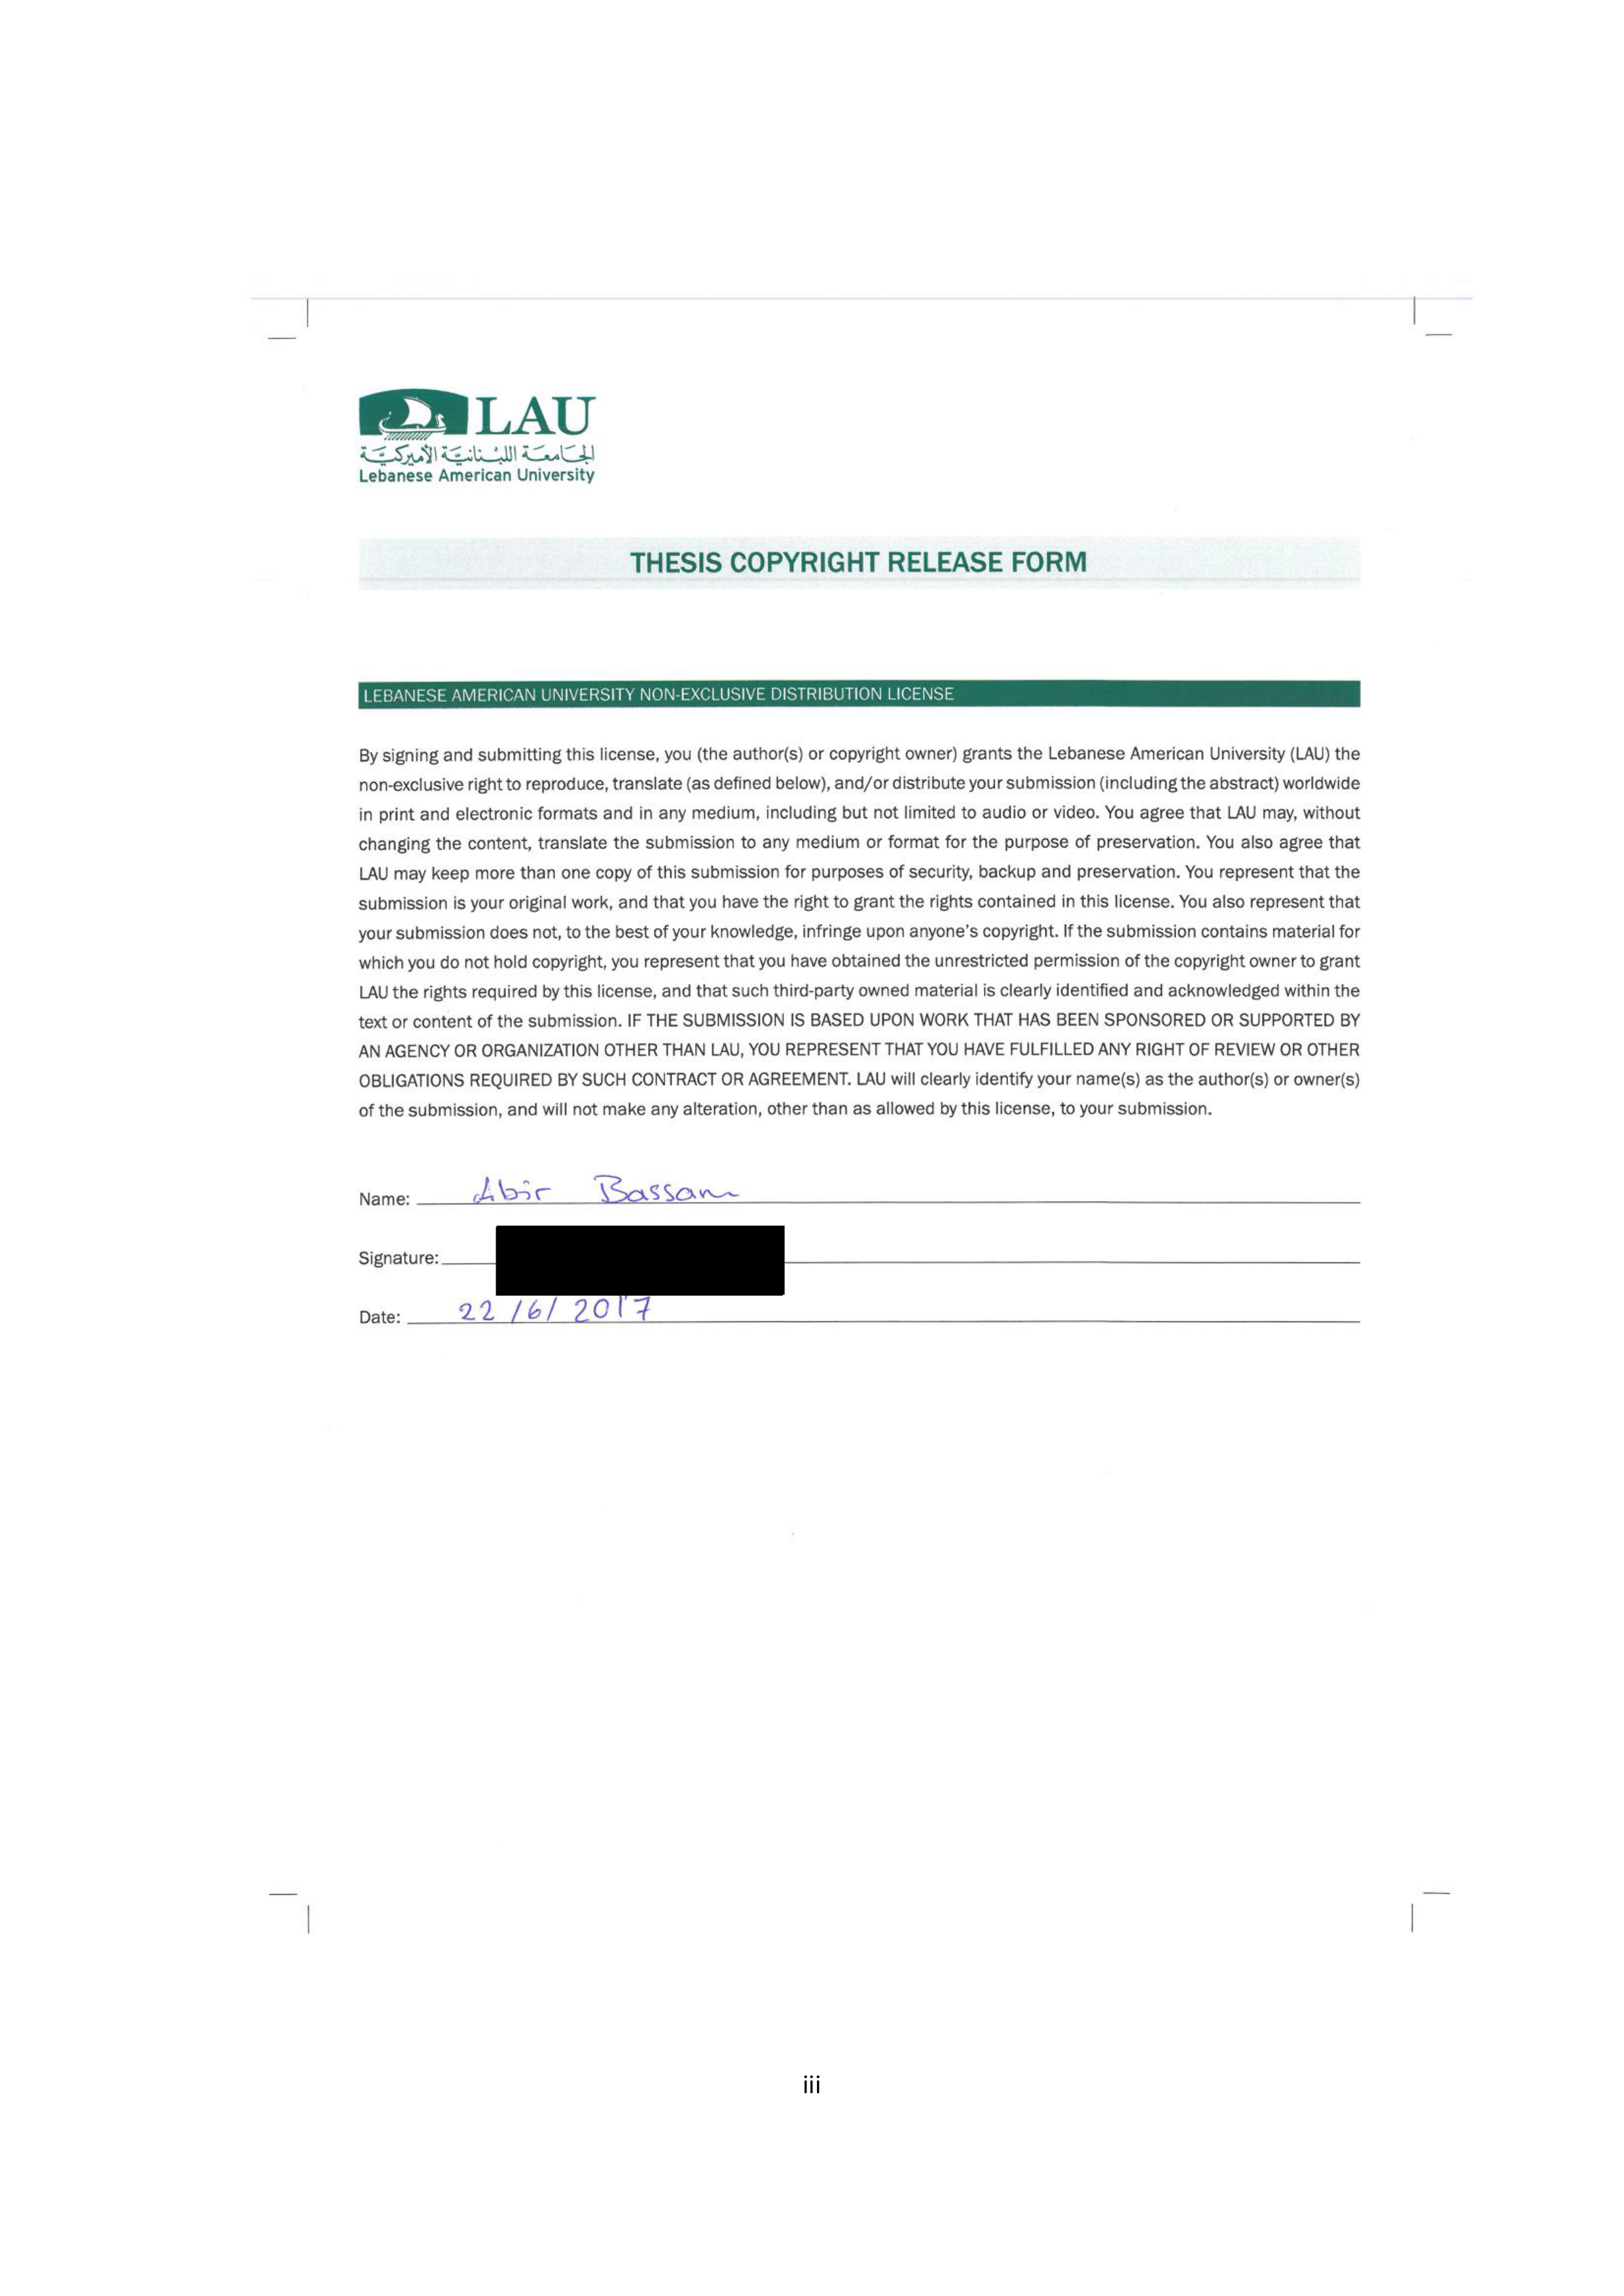 LAU
الجامعة اللبنانية الأميركية
Lebanese American University
THESIS COPYRIGHT RELEASE FORM
LEBANESE AMERICAN UNIVERSITY NON-EXCLUSIVE DISTRIBUTION LICENSE
By signing and submitting this license, you (the author(s) or copyright owner) grants the Lebanese American University (LAU) the
non-exclusive right to reproduce, translate (as defined below), and/or distribute your submission (including the abstract) worldwide
in print and electronic formats and in any medium, including but not limited to audio or video. You agree that LAU may, without
changing the content, translate the submission to any medium or format for the purpose of preservation. You also agree that
LAU may keep more than one copy of this submission for purposes of security, backup and preservation. You represent that the
submission is your original work, and that you have the right to grant the rights contained in this license. You also represent that
your submission does not, to the best of your knowledge, infringe upon anyone's copyright. If the submission contains material for
which you do not hold copyright, you represent that you have obtained the unrestricted permission of the copyright owner to grant
LAU the rights required by this license, and that such third-party owned material is clearly identified and acknowledged within the
text or content of the submission. IF THE SUBMISSION IS BASED UPON WORK THAT HAS BEEN SPONSORED OR SUPPORTED BY
AN AGENCY OR ORGANIZATION OTHER THAN LAU, YOU REPRESENT THAT YOU HAVE FULFILLED ANY RIGHT OF REVIEW OR OTHER
OBLIGATIONS REQUIRED BY SUCH CONTRACT OR AGREEMENT. LAU will clearly identify your name(s) as the author(s) or owner(s)
of the submission, and will not make any alteration, other than as allowed by this license, to your submission.
Name: Abir Bassam
Signature:
Date: 22/6/2017
iii